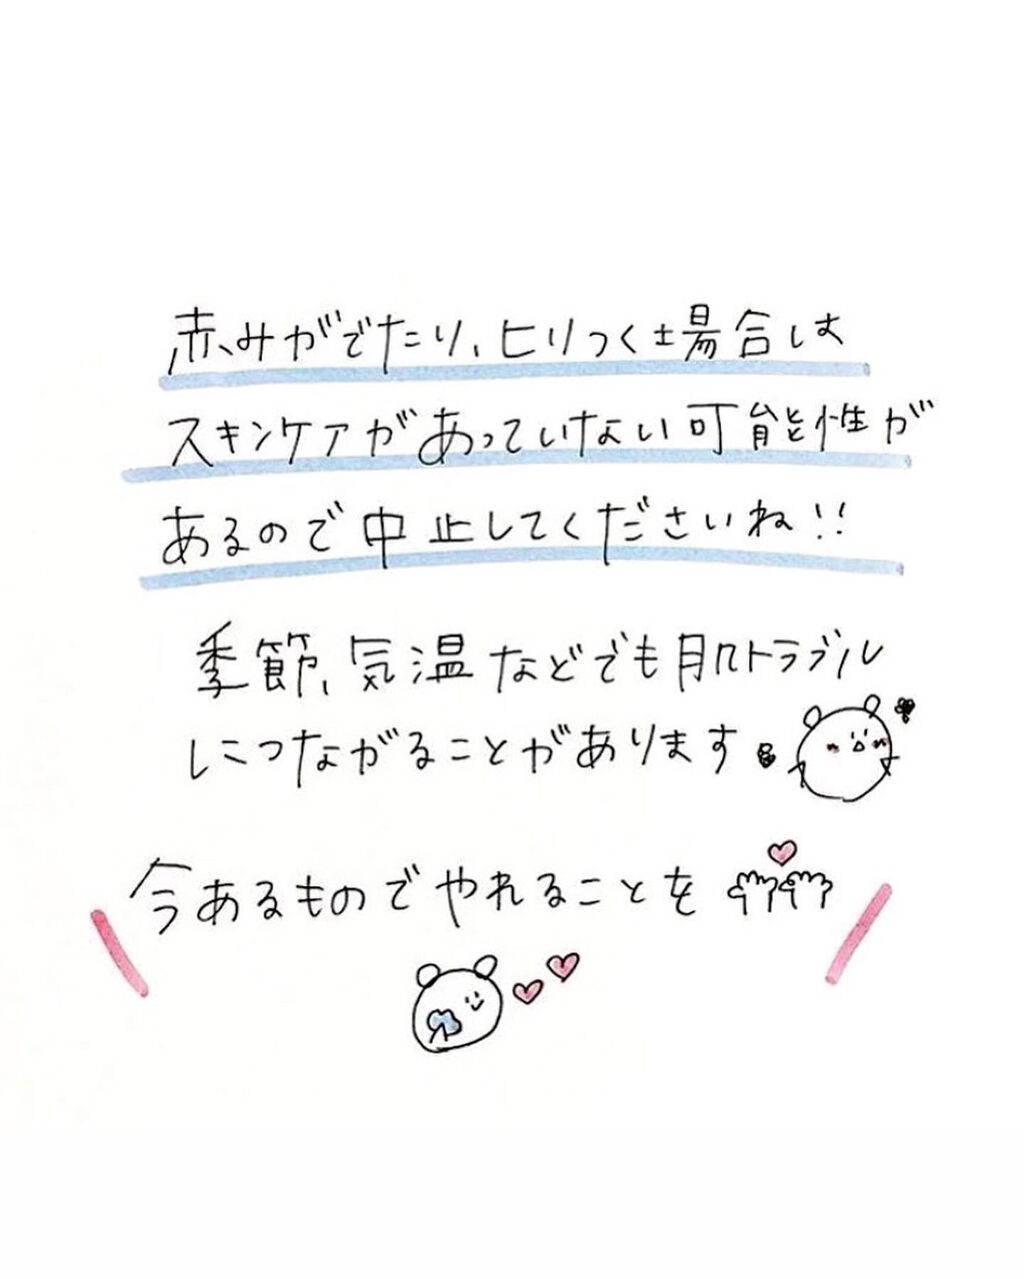 赤みがでたり、ヒリつく場合は
スキンケアがあっていない可能性が
あるので中止してくださいね!!
季節、気温などでも肌トラブル
につながることがあります
今あるものでやれることを